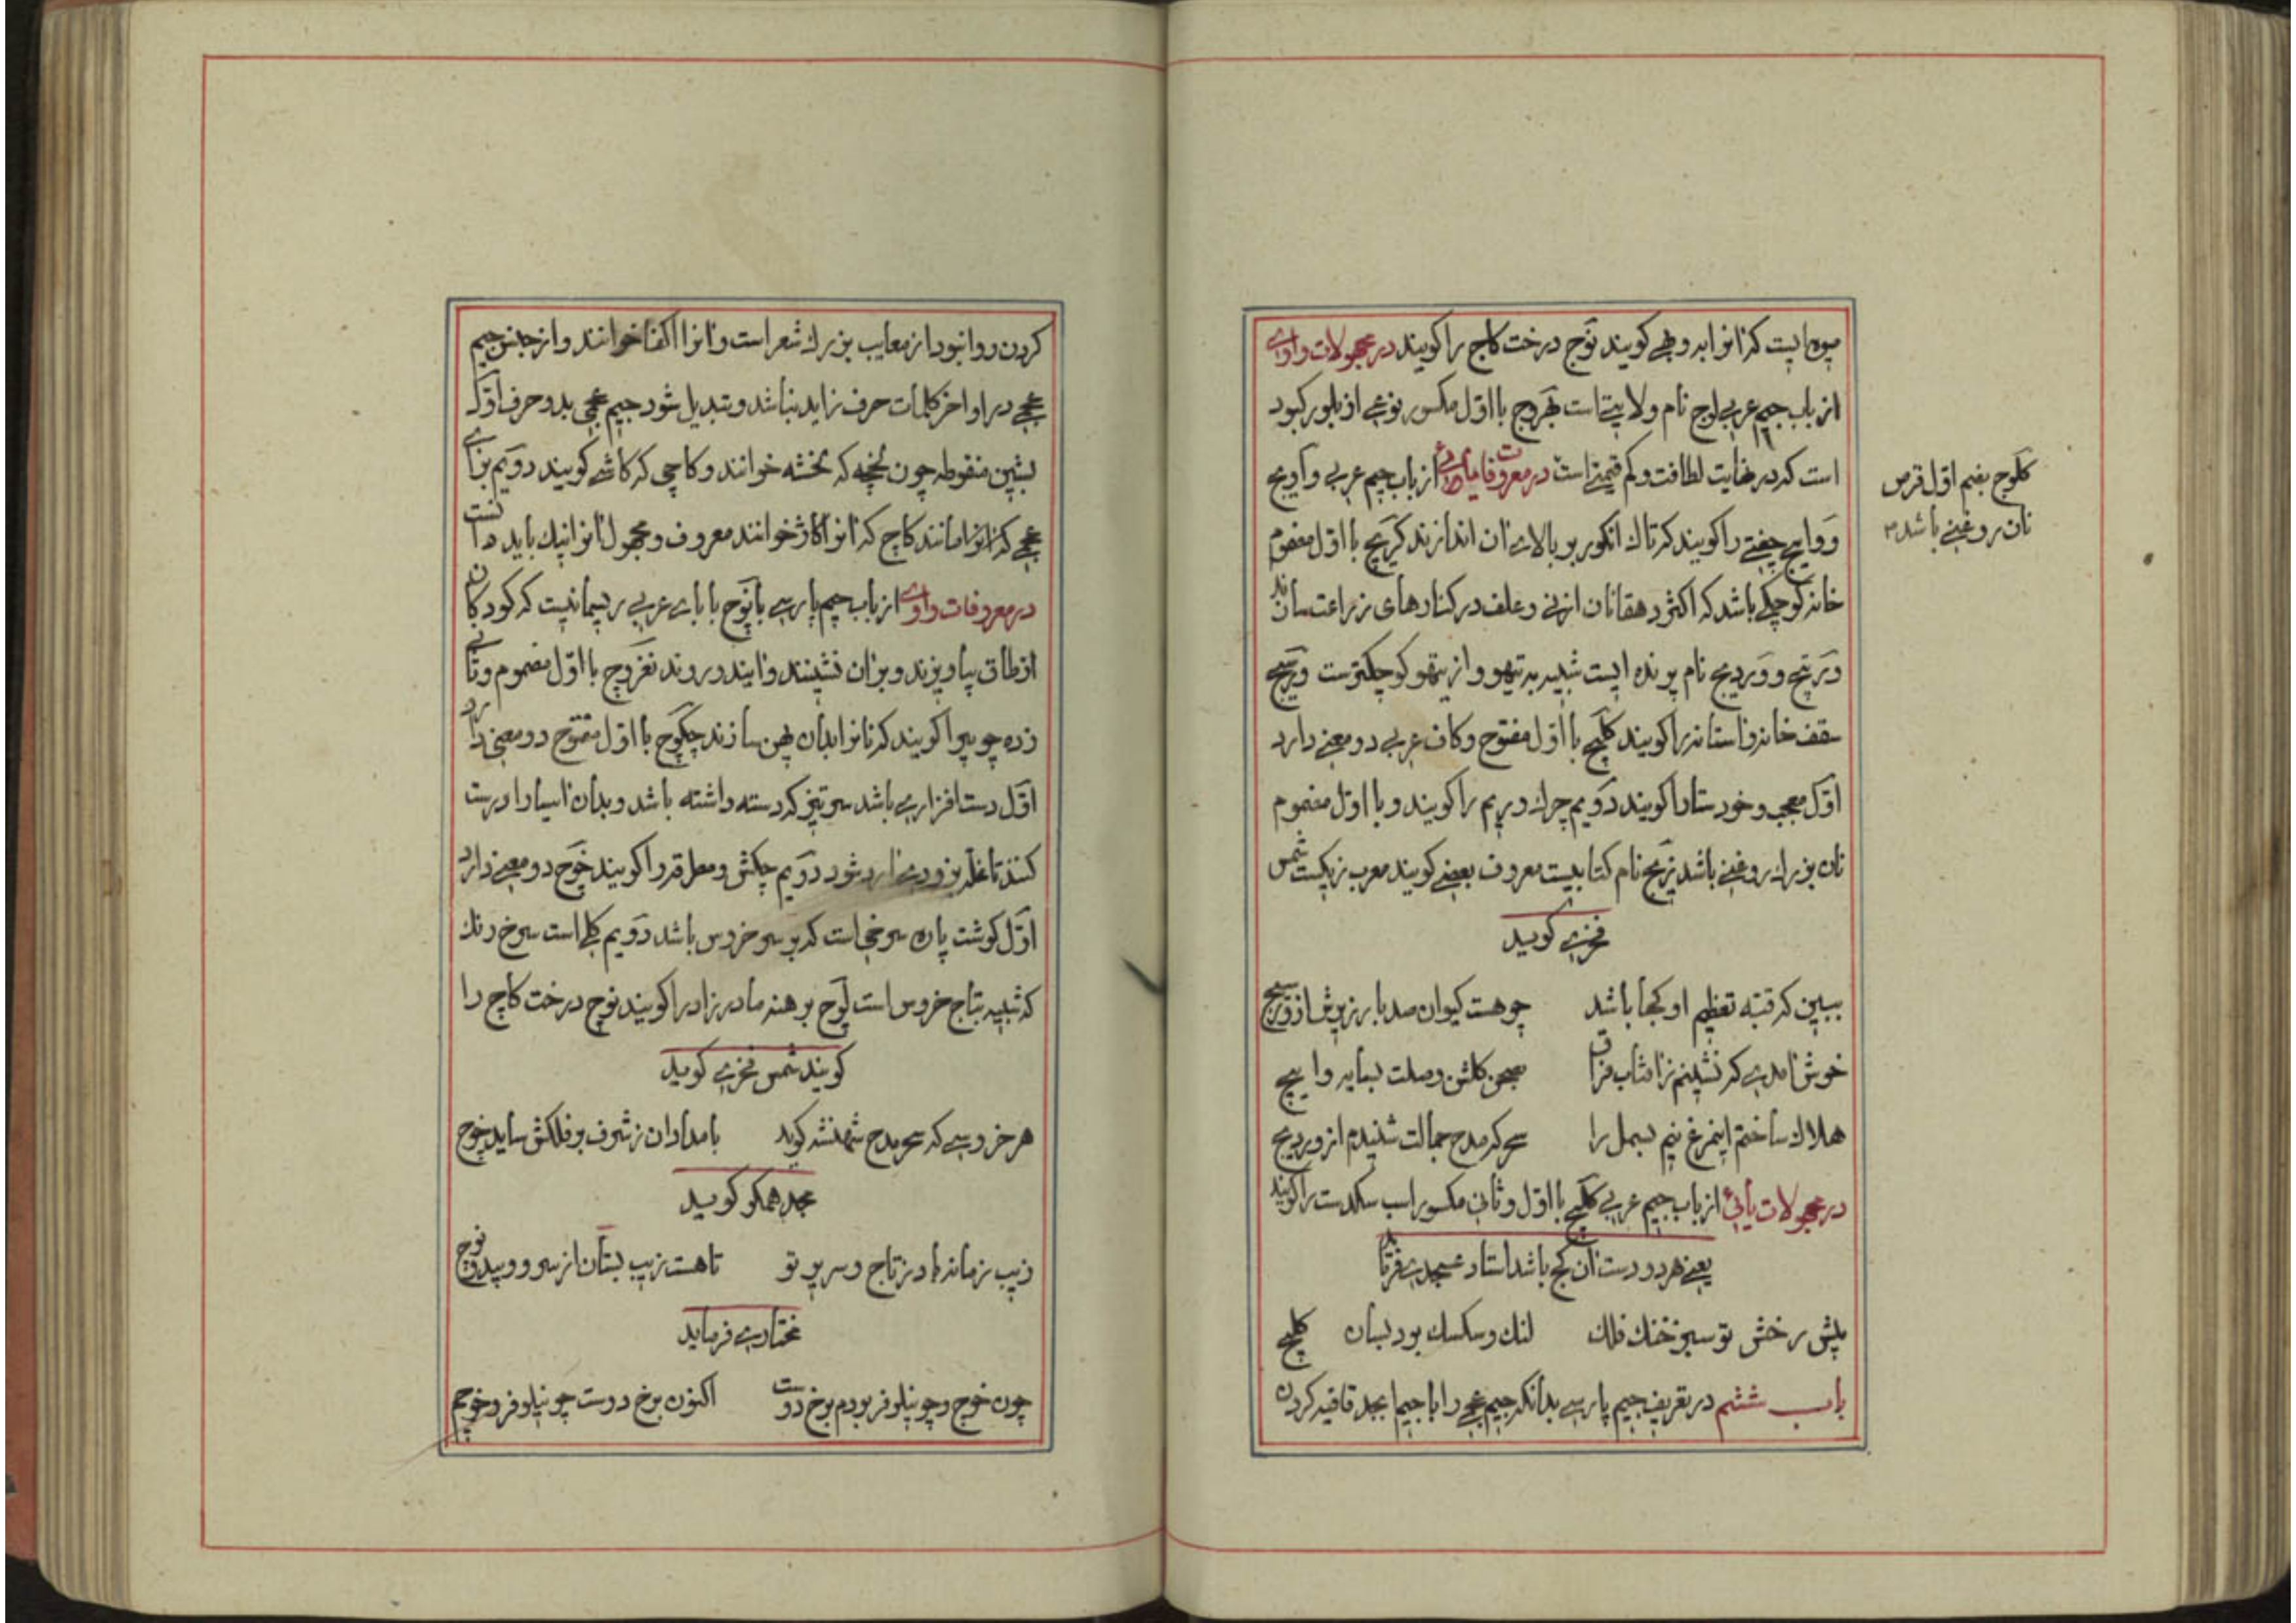 میوه ایست که انرا بد و هی کویند نوج درخت کاج را کویند در مجهولات واوی
از باب جیم عربی لوج نام ولایتی است بهروج با اول مکسور نوعی از بلور کبود
است که در غایت لطافت و کم قیمتی است در معروفات یائی از باب جیم عربی وادیج
و وایج چفتی را کویند که تاک انکور بر بالای ان اندازند کریج با اول مضموم
خانه کوچکی باشد که اکثر دهقانان از نی و علف در کنارهای زراعت سازند
ورتیج و وردیج نام پرنده ایست شبیه به تیهو و از تیهو کوچکتر ست وریج
سقف خانه و استانه را کویند کلیج با اول مفتوح و کاف عربی دو معنی دارد
اول معجب و خود ستا را کویند دویم چرک و ریم را کویند و با اول مضموم
نان بزرک روغنی باشد زیج نام کتابیست معروف بعضی کویند معرب زیکست شمس
فخری کوید
ببین که قبه تعظیم او کجا باشد چو هست کیوان صد بار زیرش از وریج
خوش امدی که نشینم ز افتاب فراق بصحن کلشن وصلت بسایه وایج
هلاک ساختم این مرغ نیم بسمل را سحر که مدح جمالت شنیدم از وردیج
در مجهولات یائی از باب جیم عربی کلیج با اول و ثانی مکسور اسب سکدست را کویند
یعنی هر دو دست ان کج باشد استاد عسجدی فرماید
پیش رخش تو سبز خنک فلک لنک و سکسک بود بسان کلیج
باب ششم در تعریف جیم پارسی بدانکه جیم عجمی را با جیم ابجد قافیه کردن
کلوج بضم اول قرص
نان روغنی باشد ۳
کردن روا نبود از معایب بزرک شعر است و انرا اکفا خوانند و از جنس جیم
عجمی در اواخر کلمات حرف زاید نباشد و تبدیل شود جیم عجمی بدو حرف اول
بشین منقوطه چون لخچه که لخشه خوانند و کاچی که کاشی کویند دویم بزای
عجمی که انرا مانند کاج که انرا کاژ خوانند معروف و مجهول انرا نیک باید دانست
در معروفات واوی از باب جیم پارسی بانوج با بای عربی ریسمانیست که کودکان
از طاق بیاویزند و بران نشینند و ایند و روند نغروج با اول مضموم و ثانی
زده چوبیرا کویند که نانرا بدان پهن سازند چکوج با اول مفتوح دو معنی دارد
اول دست افزاری باشد سر تیز که دسته داشته باشد و بدان اسیا را درست
کنند تا غله بزودی ارد شود دویم چکش و مطرقه را کویند خوج دو معنی دارد
اول کوشت پاره سرخی است که بر سر خروس باشد دویم کلی است سرخ رنک
که شبیه بتاج خروس است لوج برهنه مادر زاد را کویند نوج درخت کاج را
کویند شمس فخری کوید
هر خروسی که سحر مدح شهنشه کوید بامدادان ز شرف بر فلکش ساید خوج
مجد همکر کوید
زیب زمانه باد ز تاج و سریر تو تا هست زیب بستان از سرو و بید و نوج
مختاری فرماید
چون خوج و چو نیلوفر بودم برخ دوست اکنون برخ دوست چو نیلوفر و خوجم